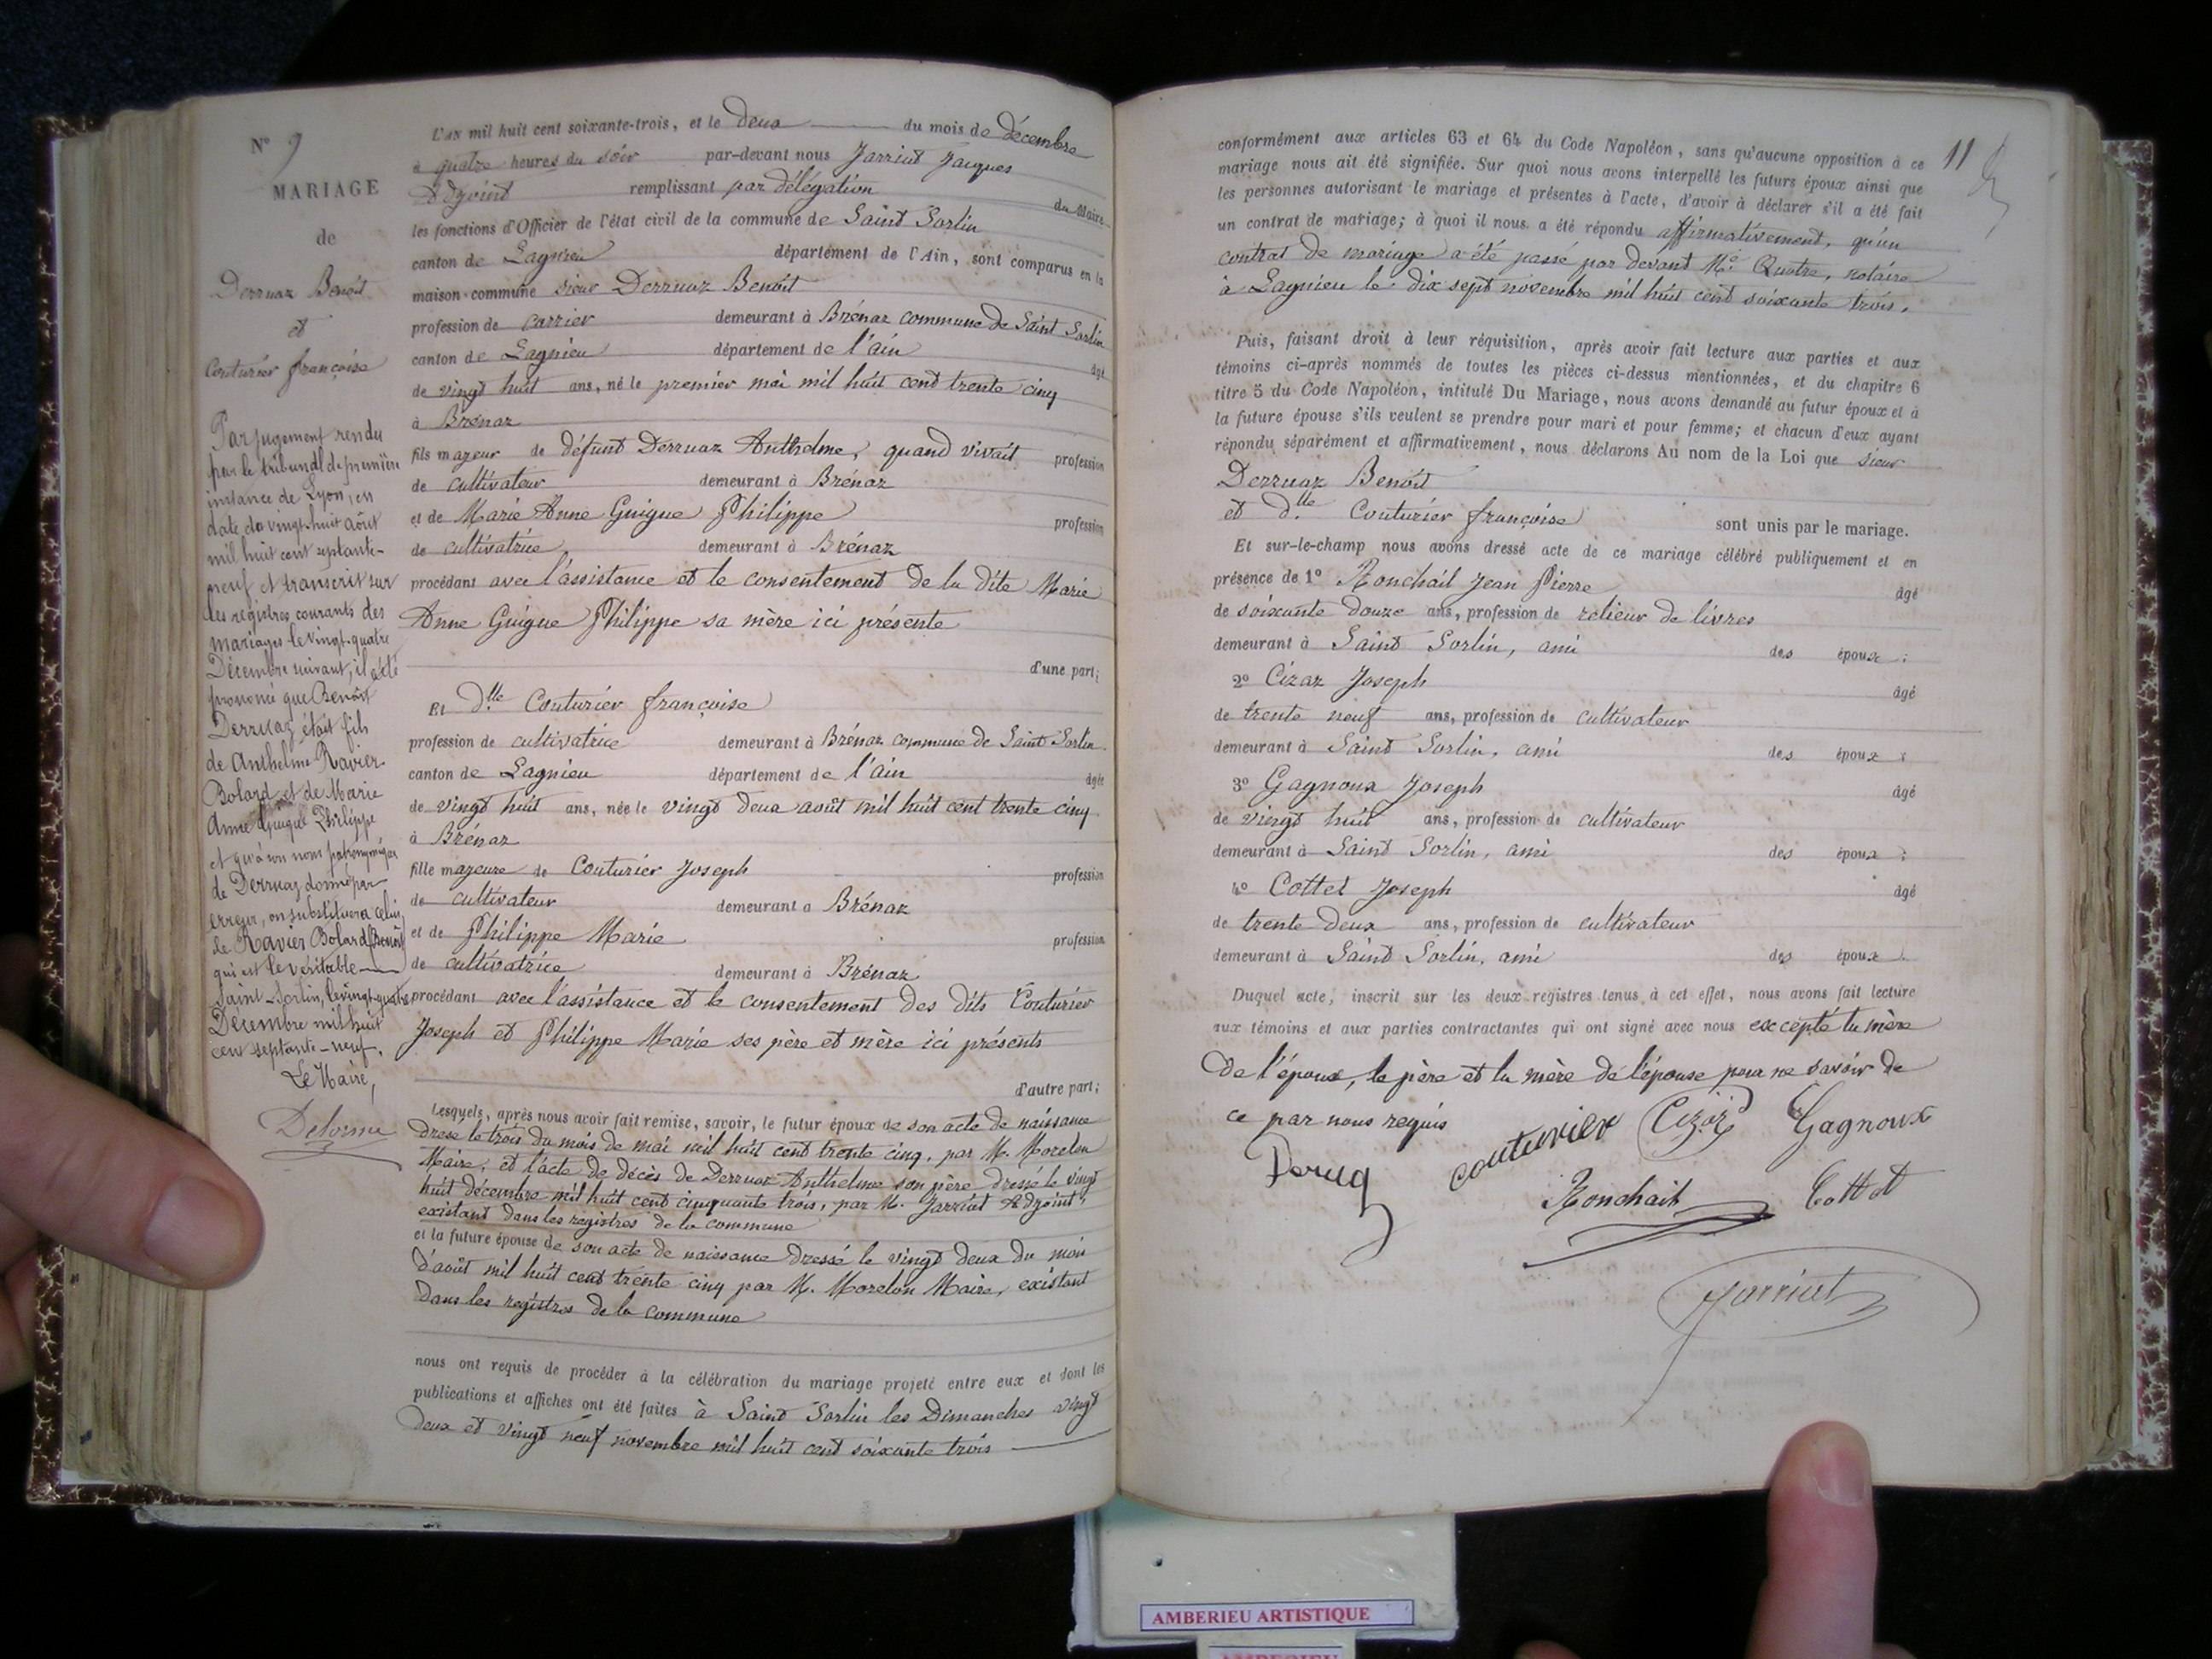 N° 9
MARIAGE
de
Derruaz Benoît
et
Couturier françoise
Par jugement rendu
par le tribunal de première
instance de Lyon, en
date du vingt-huit août
mil huit cent septante-
neuf et transcrit sur
les registres courants des
mariages le vingt-quatre
Décembre suivant, il a été
prononcé que Benoît
Derruaz était fils
de Anthelme Ravier
Bolard et de Marie
Anne Guigue Philippe
et qu'à son nom patronymique
de Derruaz donné par
erreur, on substituera celui
de Ravier Bolard (Benoît)
qui est le véritable
Saint-Sorlin, le vingt-quatre
Décembre mil huit
cent septante-neuf.
Le Maire,
Delorme
L'AN mil huit cent soixante-trois, et le deux du mois de décembre
à quatre heures du soir par-devant nous Jarriat Jacques
Adjoint remplissant par délégation du Maire
les fonctions d'Officier de l'état civil de la commune de Saint Sorlin
canton de Lagnieu département de l'Ain, sont comparus en la
maison commune sieur Derruaz Benoît
profession de carrier demeurant à Brénaz commune de Saint Sorlin
canton de Lagnieu département de l'ain âgé
de vingt huit ans, né le premier mai mil huit cent trente cinq
à Brénaz
fils majeur de défunt Derruaz Anthelme, quand vivait profession
de cultivateur demeurant à Brénaz
et de Marie Anne Guigue Philippe profession
de cultivatrice demeurant à Brénaz
procédant avec l'assistance et le consentement de la dite Marie
Anne Guigue Philippe sa mère ici présente
d'une part;
Et Dlle Couturier françoise
profession de cultivatrice demeurant à Brénaz commune de Saint Sorlin
canton de Lagnieu département de l'ain âgée
de vingt huit ans, née le vingt deux août mil huit cent trente cinq
à Brénaz
fille majeure de Couturier Joseph profession
de cultivateur demeurant à Brénaz
et de Philippe Marie profession
de cultivatrice demeurant à Brénaz
procédant avec l'assistance et le consentement des dits Couturier
Joseph et Philippe Marie ses père et mère ici présents
d'autre part;
Lesquels, après nous avoir fait remise, savoir, le futur époux de son acte de naissance
dressé le trois du mois de mai mil huit cent trente cinq, par M. Morelon
Maire, et l'acte de décès de Derruaz Anthelme son père dressé le vingt
huit décembre mil huit cent cinquante trois, par M. Jarriat Adjoint,
existant dans les registres de la commune
et la future épouse de son acte de naissance dressé le vingt deux du mois
d'août mil huit cent trente cinq par M. Morelon Maire, existant
dans les registres de la commune
nous ont requis de procéder à la célébration du mariage projeté entre eux et dont les
publications et affiches ont été faites à Saint Sorlin les Dimanches vingt
deux et vingt neuf novembre mil huit cent soixante trois
11
conformément aux articles 63 et 64 du Code Napoléon, sans qu'aucune opposition à ce
mariage nous ait été signifiée. Sur quoi nous avons interpellé les futurs époux ainsi que
les personnes autorisant le mariage et présentes à l'acte, d'avoir à déclarer s'il a été fait
un contrat de mariage; à quoi il nous a été répondu affirmativement, qu'un
contrat de mariage a été passé par devant Me. Quatre, notaire
à Lagnieu le dix sept novembre mil huit cent soixante trois.
Puis, faisant droit à leur réquisition, après avoir fait lecture aux parties et aux
témoins ci-après nommés de toutes les pièces ci-dessus mentionnées, et du chapitre 6
titre 5 du Code Napoléon, intitulé Du Mariage, nous avons demandé au futur époux et à
la future épouse s'ils veulent se prendre pour mari et pour femme; et chacun d'eux ayant
répondu séparément et affirmativement, nous déclarons Au nom de la Loi que sieur
Derruaz Benoît
et Dlle Couturier françoise sont unis par le mariage.
Et sur-le-champ nous avons dressé acte de ce mariage célébré publiquement et en
présence de 1° Ronchail Jean Pierre âgé
de soixante douze ans, profession de relieur de livres
demeurant à Saint Sorlin, ami des époux;
2° Cizaz Joseph âgé
de trente neuf ans, profession de cultivateur
demeurant à Saint Sorlin, ami des époux;
3° Gagnoux Joseph âgé
de vingt huit ans, profession de cultivateur
demeurant à Saint Sorlin, ami des époux;
4° Cottet Joseph âgé
de trente deux ans, profession de cultivateur
demeurant à Saint Sorlin, ami des époux.
Duquel acte, inscrit sur les deux registres tenus à cet effet, nous avons fait lecture
aux témoins et aux parties contractantes qui ont signé avec nous excepté la mère
de l'époux, le père et la mère de l'épouse pour ne savoir de
ce par nous requis
couturier Cizaz Gagnoux
Ronchail Cottet
Jarriat
AMBERIEU ARTISTIQUE